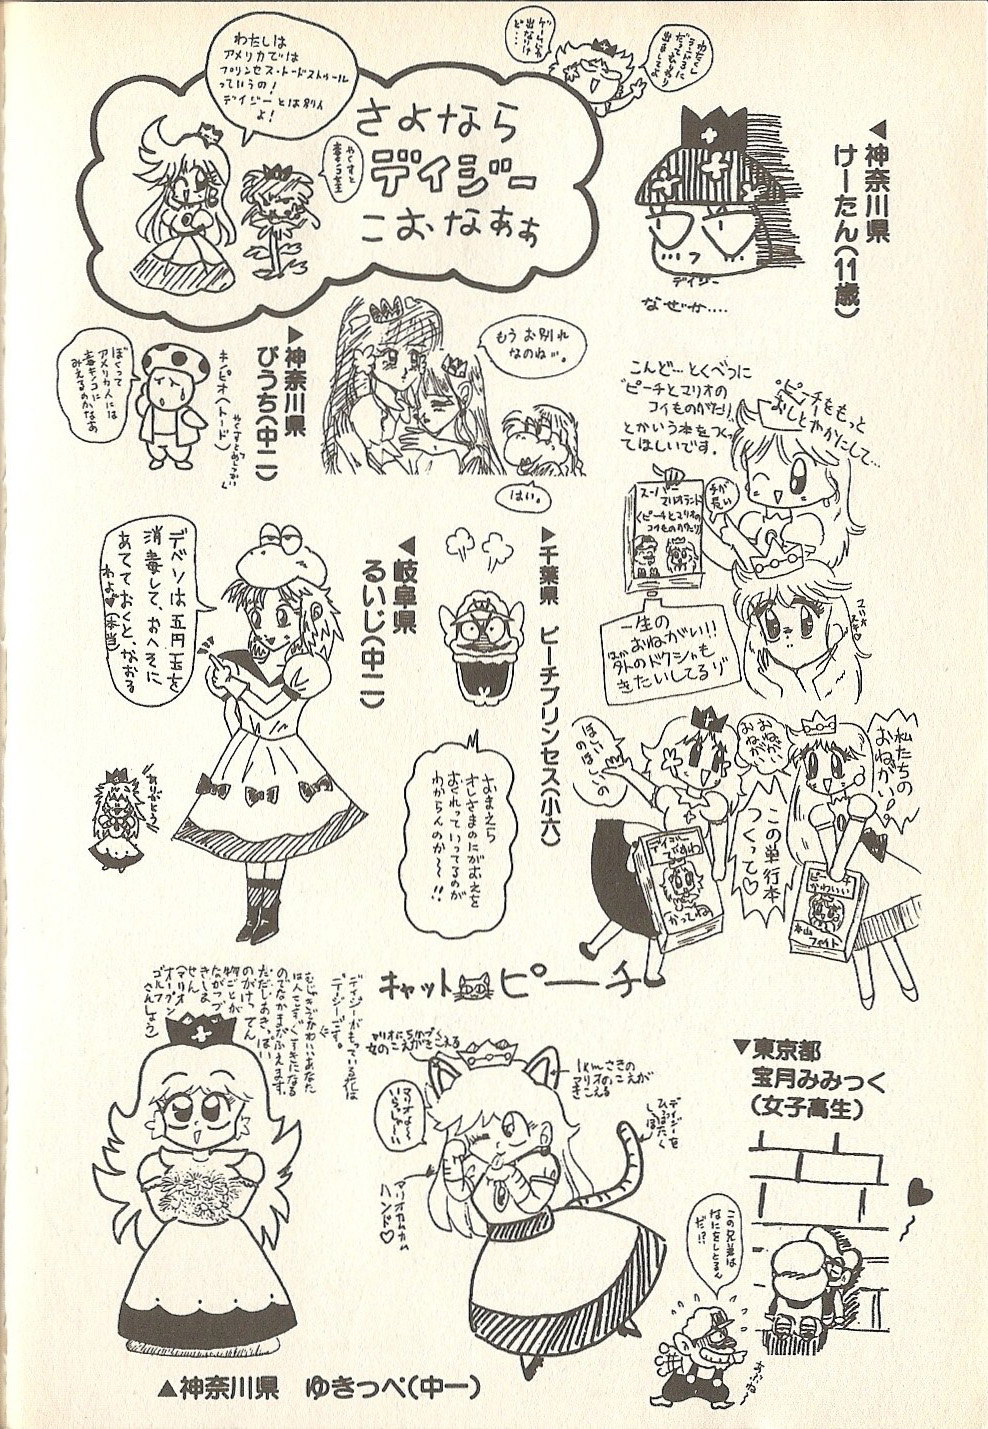 わたしは
アメリカでは
プリンセス・トードストゥール
っていうの!
デイジーとは別人
よ!
さよなら
デイジー
こおなぁぁ
ゲームにも
出なりけ
ど…
▲神奈川県
けーたん(11歳)
デイジー
なぜか….
▲神奈川県
ぴうち(中二)
ぼくって
アメリカ人には
毒キノコに
みえるのかなあ
キノピオ(トード)
もうお別れ
なのね…。
はい。
こんど…とくべつに
"ピーチとマリオの
コイものがたり"
とかいう本をつくっ
てほしいです。
"ピーチをもっと
おしとやかにして…
スーパー
マリオランド
〈ピーチとマリオの
コイものがたり〉
一生の
おねがい!!
ほか
外のドクシャも
きたいしてるゾ
デベソは五円玉を
消毒して、おへそに
あてておくと、なおる
わよ♥(本当)
▲岐阜県
るいじ(中二)
ありがとう
▲千葉県 ピーチプリンセス(小六)
おまえら
オレさまのにがおえを
おそれっていってるのが
わからんのか〜!!
はーい
おねがい
おねがい
私たちの
おねがい。
この単行本
つくって♡
デイジー
でかわ
かってね
ピーチ
かわいい
本山
ファイト
キャットピーチ
デイジーがもっている花は
デージーです。
(マリオ
オープン
ゴルフ
さんしょう)
マリオにちかづく
女のこえがきこえる
1kmさきの
マリオのこえが
きこえる
デイジーを
ひっぱたく
しっぽ
マリオ〜
いらっしゃ〜い
マリオカムカム
ハンド♡
▼東京都
宝月みみつく
(女子高生)
この兄弟は
なにをしとるん
だ!?
▲神奈川県 ゆきっぺ(中一)